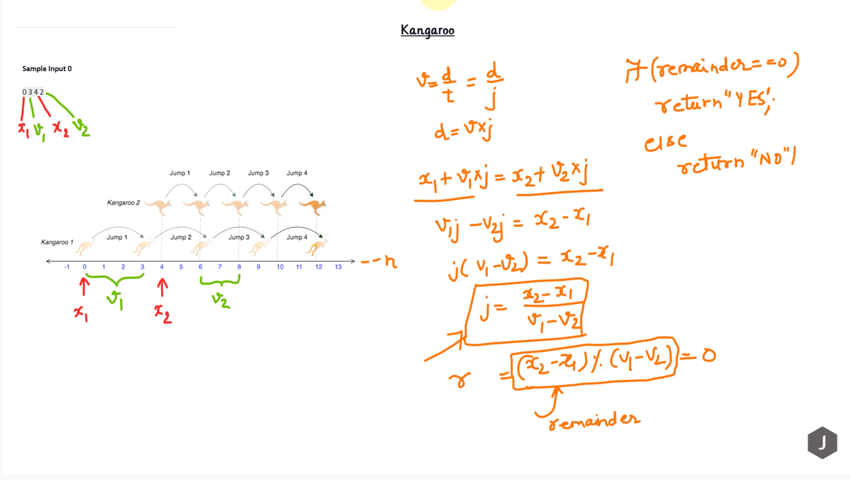 Kangaroo
Sample Input 0
0 3 4 2
x₁ v₁ x₂ v₂
Jump 1 Jump 2 Jump 3 Jump 4
Kangaroo 2
Kangaroo 1
Jump 1 Jump 2 Jump 3 Jump 4
-1 0 1 2 3 4 5 6 7 8 9 10 11 12 13 --n
x₁ v₁ x₂ v₂
v = d/t = d/j
d = v×j
x₁ + v₁×j = x₂ + v₂×j
v₁j - v₂j = x₂ - x₁
j(v₁ - v₂) = x₂ - x₁
j = (x₂ - x₁)/(v₁ - v₂)
r = (x₂ - x₁) % (v₁ - v₂) = 0
remainder
if (remainder == 0)
return "YES";
else
return "NO")
J